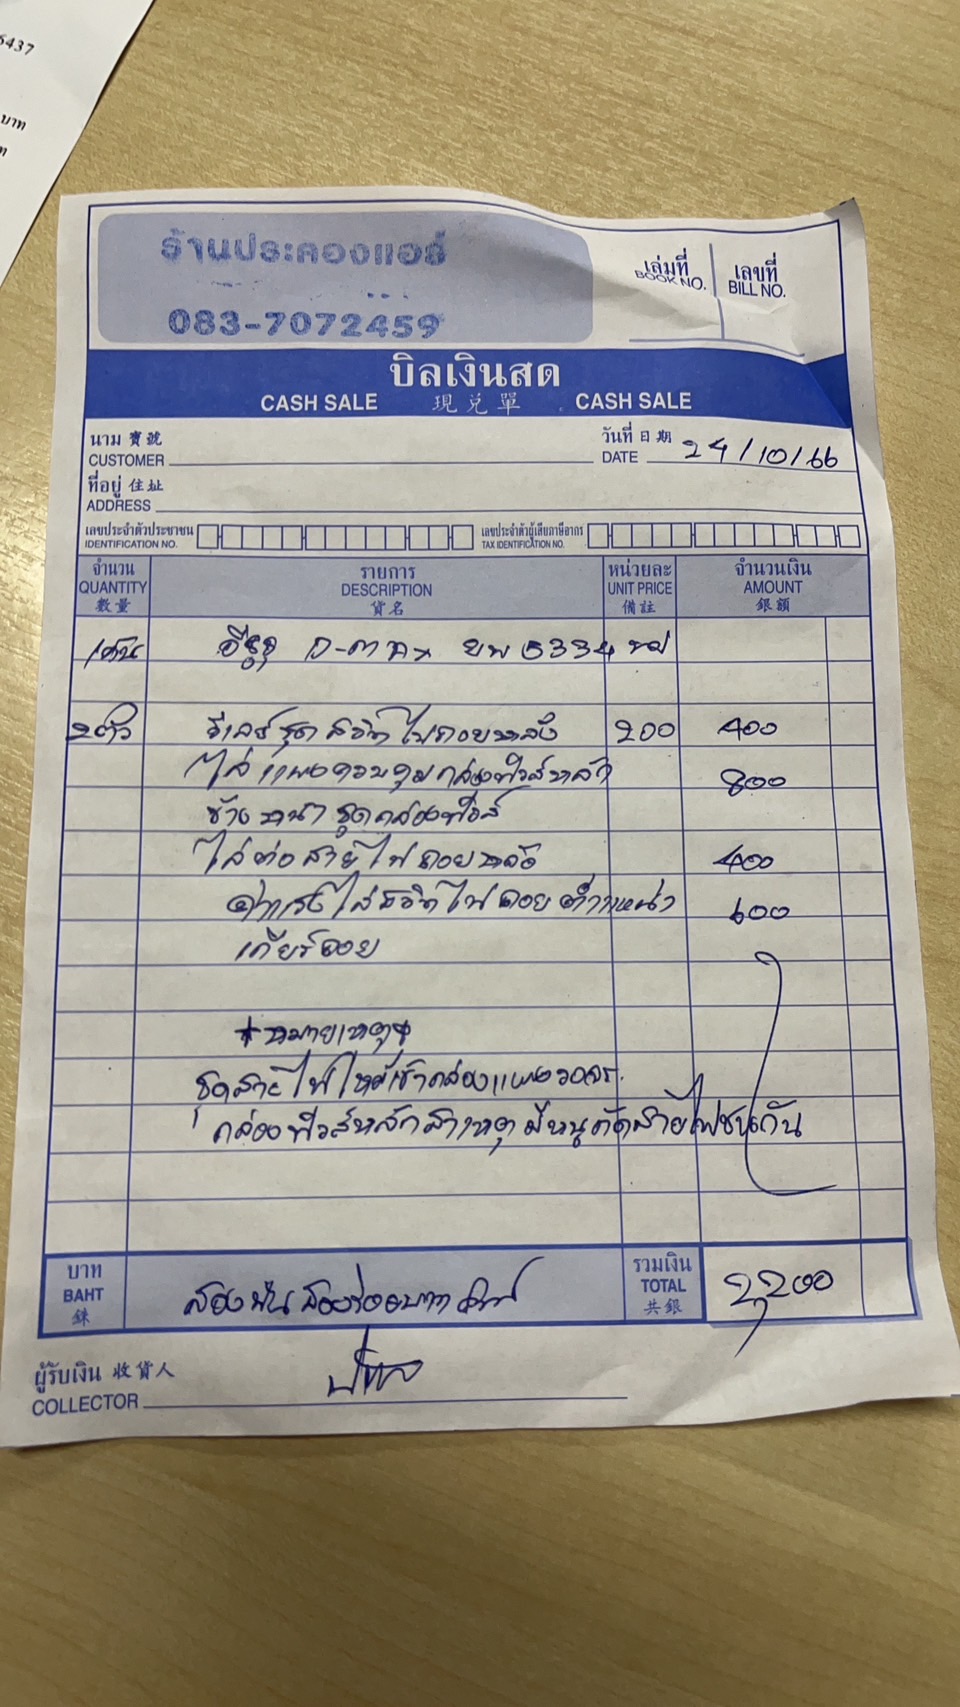 6437
บาท
ร้านประคองแอร์
083-7072459
เล่มที่
BOOK NO.
เลขที่
BILL NO.
บิลเงินสด
CASH SALE 現兑單 CASH SALE
นาม 寶號
CUSTOMER
วันที่ 日期
DATE 24/10/66
ที่อยู่ 住址
ADDRESS
เลขประจำตัวประชาชน
IDENTIFICATION NO.
เลขประจำตัวผู้เสียภาษีอากร
TAX IDENTIFICATION NO.
จำนวน รายการ หน่วยละ จำนวนเงิน
QUANTITY DESCRIPTION UNIT PRICE AMOUNT
數量 貨名 備註 銀額
1คัน อีซูซุ D-max 5334
2ตัว รีเลย์ชุดสวิทไฟถอยหลัง 200 400
ไล่แผงควบคุมกล่องฟิวส์หลัก 800
ข้างหน้า ชุดกล่องฟิวส์
ไล่ต่อสายไฟถอยหลัง 400
ค่าแรงไล่สวิทไฟถอยตำแหน่ง 600
เกียร์ถอย
+หมายเหตุ+
ชุดสายไฟไหม้เข้ากล่องแผงวงจร.
กล่องฟิวส์หลักสาเหตุมีหนูกัดสายไฟชนกัน
บาท
BAHT
銖
สองพันสองร้อยบาท
รวมเงิน
TOTAL
共銀
2,200
ผู้รับเงิน 收貨人
COLLECTOR